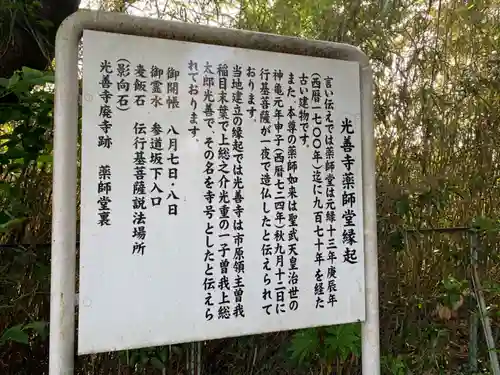 光善寺薬師堂縁起
言い伝えでは薬師堂は元緑十三年庚辰年
(西暦一七〇〇年)迄に九百七十年を経た
古い建物です。
また、本尊の薬師如来は聖武天皇治世の
神亀元年甲子(西暦七二四年)秋九月十二日に
行基菩薩が一夜で造仏したと伝えられて
おります。
当地建立の縁起では光善寺は市原領主曽我
稲目末葉で上総之介光重の一子曽我上総
太郎光善で、その名を寺号としたと伝えら
れております。
御開帳 八月七日・八日
御霊水 参道坂下入口
麦飯石 伝行基菩薩説法場所
(影向石)
光善寺廃寺跡 薬師堂裏